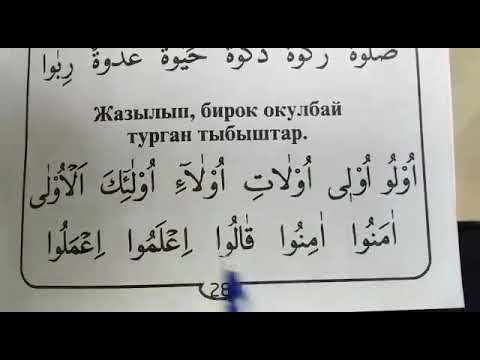 صَلٰوةْ زَكٰوةْ ذَكٰوةْ حَيٰوةْ عَدٰوةْ رِبٰوا
Жазылып, бирок окулбай
турган тыбыштар.
اُو۬لُو اُو۬لِى اُو۬لَاتِ اُو۬لَآءِ اُو۬لٰئِكَ اَلْاُو۬لٰى
اٰمَنُوا اٰمِنُوا قَالُوا اِعْلَمُوا اِعْمَلُوا
28